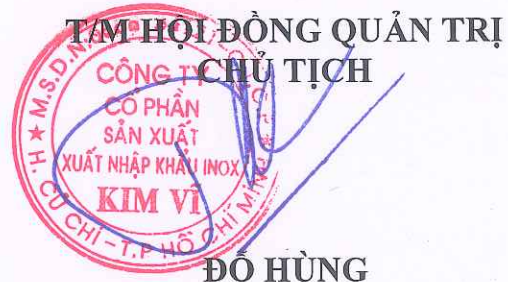 T/M HỘI ĐỒNG QUẢN TRỊ
CHỦ TỊCH
M.S.D.N
CÔNG TY
CỔ PHẦN
SẢN XUẤT
XUẤT NHẬP KHẨU INOX
KIM VĨ
H. CỦ CHI - T.P HỒ CHÍ MINH
ĐỖ HÙNG